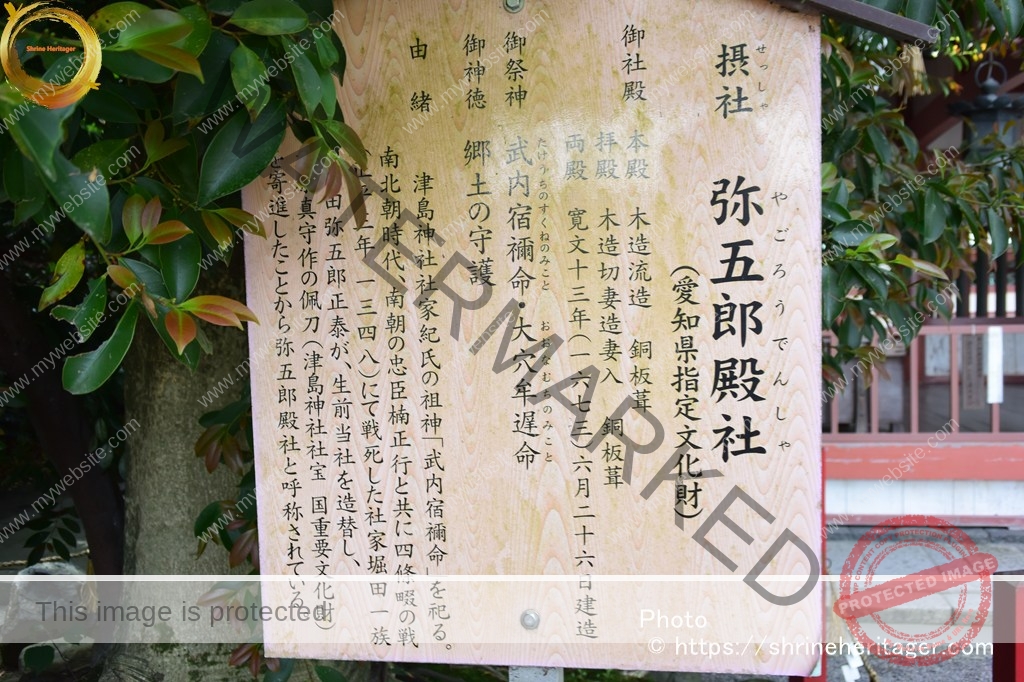 摂社 弥五郎殿社
せっしゃ やごろうでんしゃ
(愛知県指定文化財)
御社殿 本殿 木造流造 銅板葺
拝殿 木造切妻造妻入 銅板葺
両殿 寛文十三年(一六七三)六月二十六日建造
御祭神 武内宿禰命・大穴牟遅命
たけうちのすくねのみこと おおなむちのみこと
御神徳 郷土の守護
由緒
津島神社社家紀氏の祖神「武内宿禰命」を祀る。
南北朝時代、南朝の忠臣楠正行と共に四條畷の戦
三年一三四八)にて戦死した社家堀田一族
田弥五郎正泰が、生前当社を造替し、
真守作の佩刀(津島神社社宝 国重要文化財)
を寄進したことから弥五郎殿社と呼称されている。
Shrine Heritager
WATERMARKED
www.mywebsite.com
PROTECTED IMAGE
This image is protected
Photo
© https://shrineheritager.com